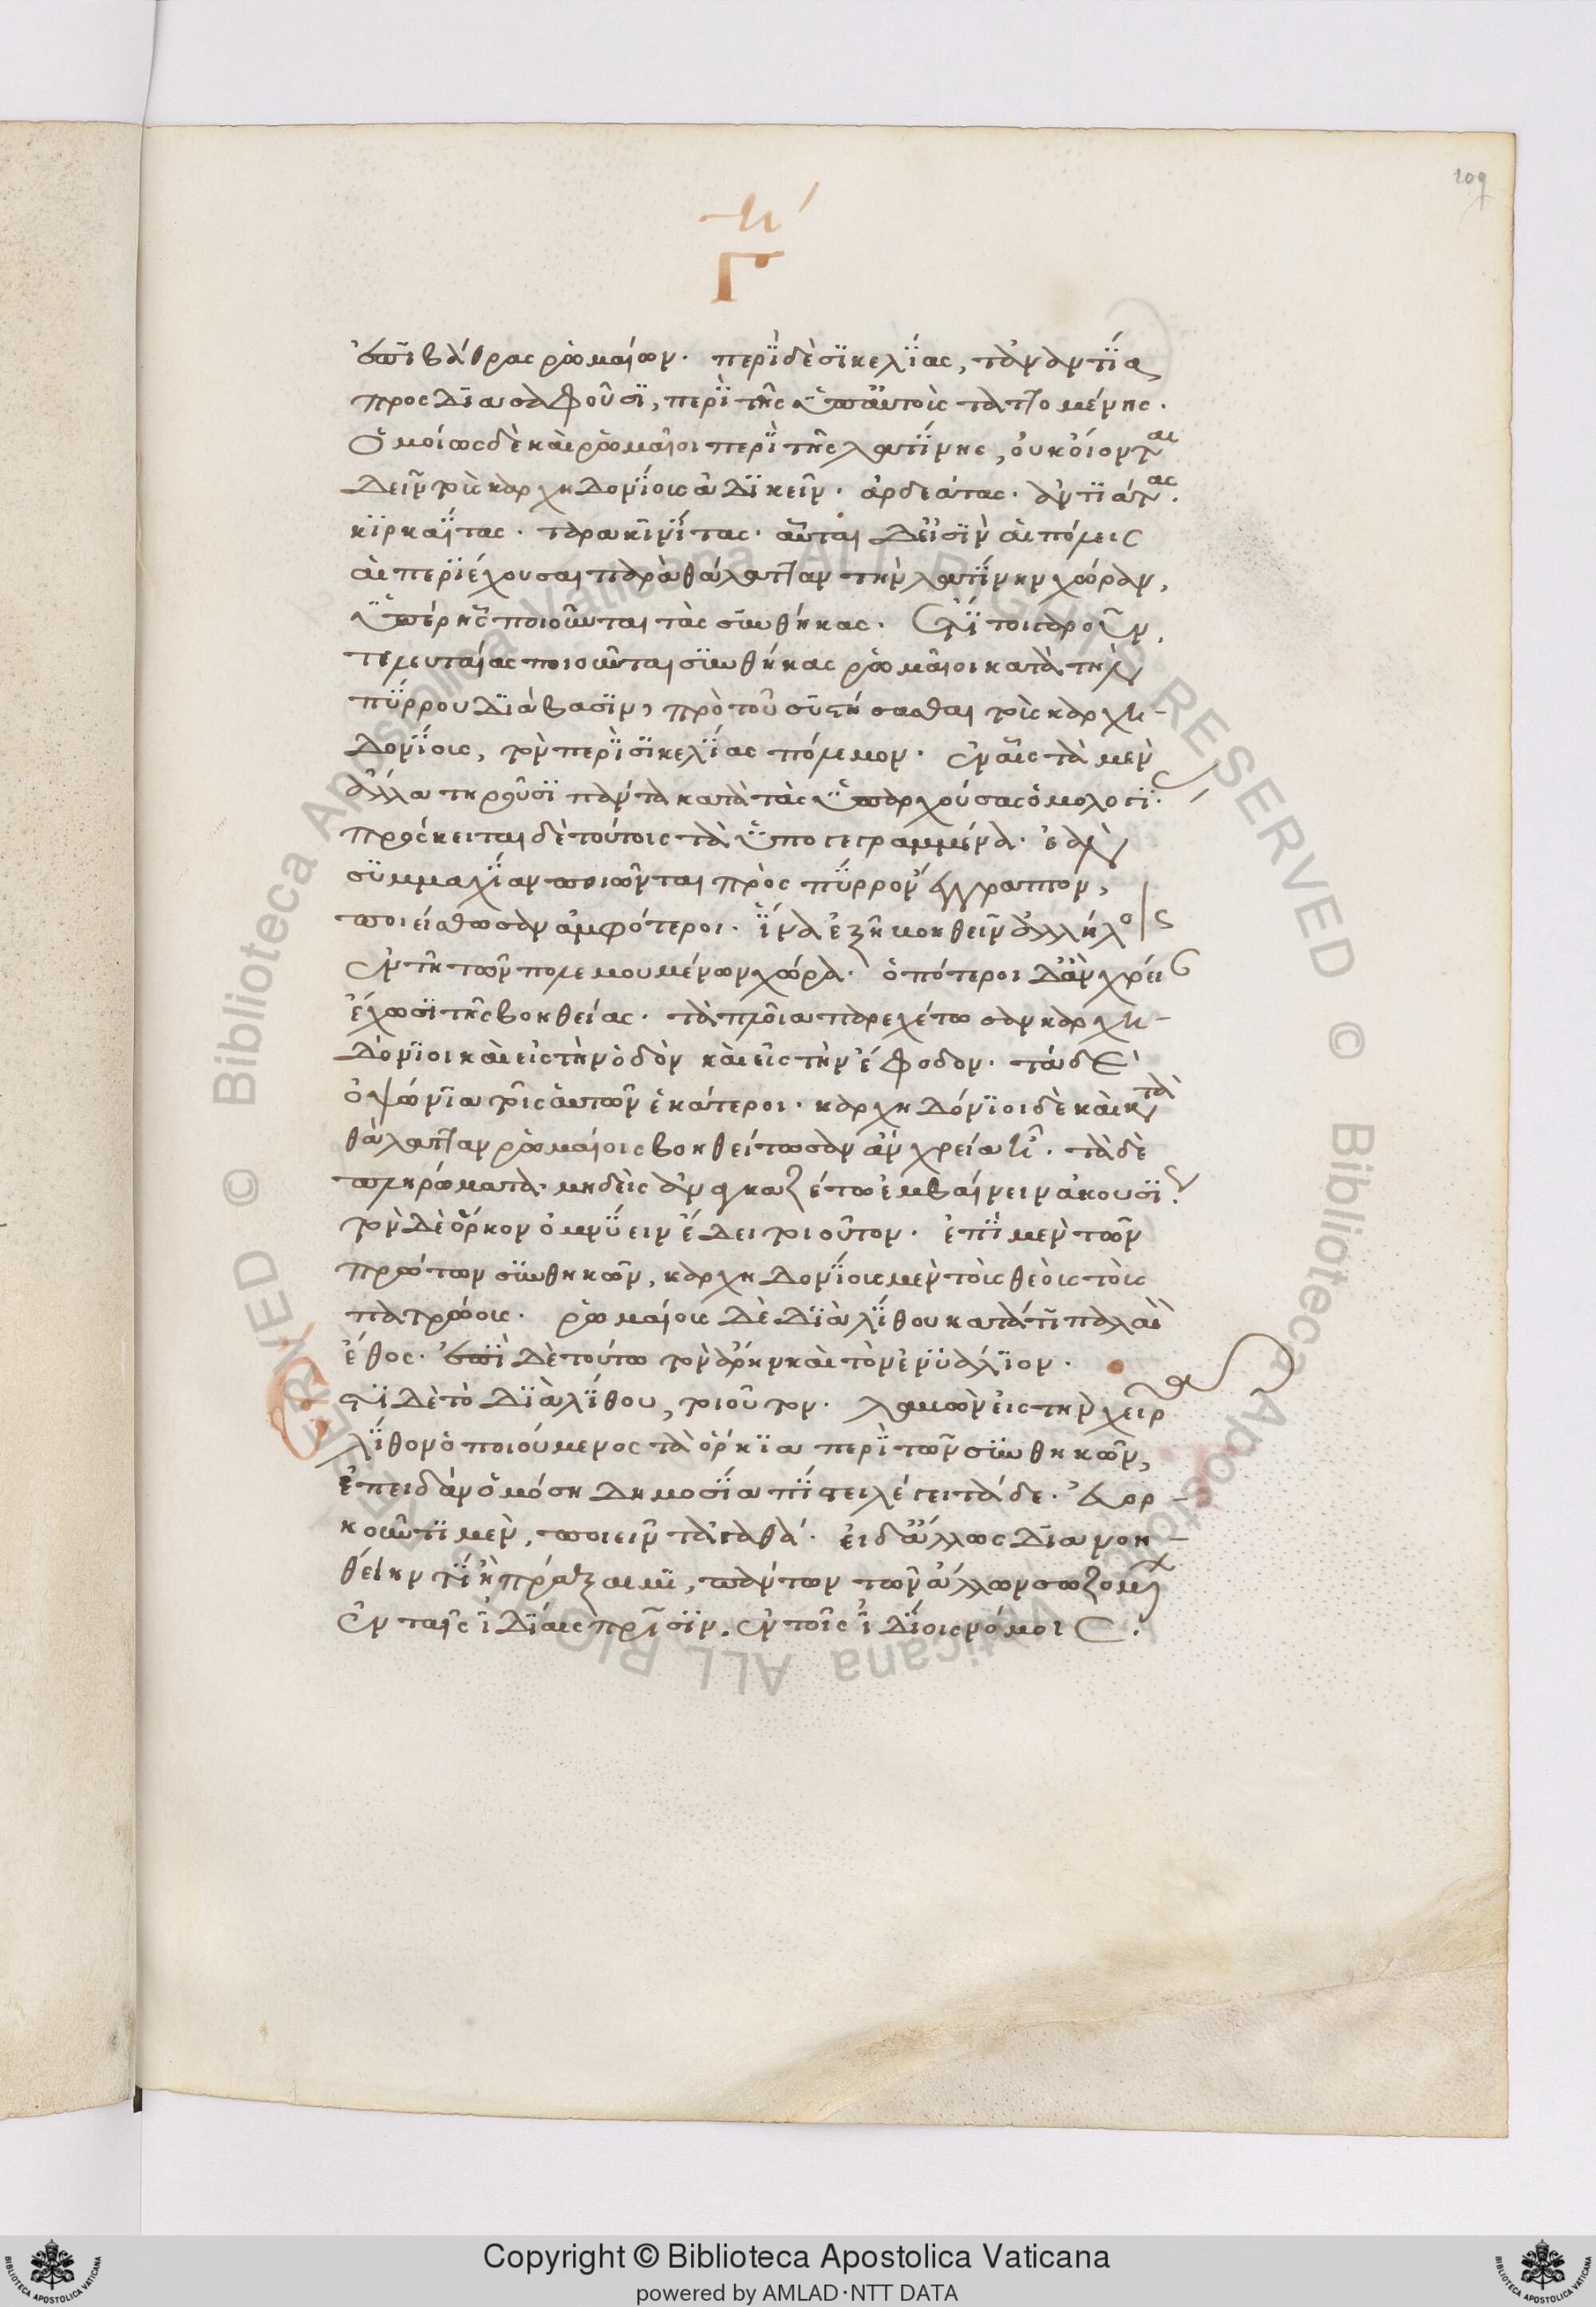 109
η´
Γ
ἐπιβάθρας ῥωμαίων. περῒ δὲ σϊκελΐας, τἀναντΐα
προσδϊασαφοῦσϊ, περῒ τῆς ὑπ' αὐτοῖς ταττομένης.
ὁμοίως δὲ καὶ ῥωμαῖοι περῒ τῆς λατΐνης, οὐκ οἴονται
δεῖν τοῖς καρχηδονΐοις ἀδϊκεῖν. ἀρδεάτας. ἀντϊάτας.
κϊρκαΐτας. ταρακϊνΐτας. αὗται δ' εἰσῒν αἱ πόλεις
αἱ περϊέχουσαι παρὰ θάλατταν τὴν λατΐνην χώραν,
ὑπὲρ ἧς ποιοῦνται τὰς συνθήκας. ἔτϊ τοιγαροῦν
τελευταίας ποιοῦνται συνθήκας ῥωμαῖοι κατὰ τὴν
πΰρρου διάβασϊν, πρὸ τοῦ συστήσασθαι τοῖς καρχη-
δονΐοις, τὸν περῒ σϊκελΐας πόλεμον. ἐν αἷς τὰ μὲν
ἄλλα τηροῦσϊ πάντα κατὰ τὰς ὑπαρχούσας ὁμολογΐας.
πρόσκειται δὲ τούτοις τὰ ὑπογεγραμμένα. ἐὰν
συμμαχΐαν ποιῶνται πρὸς πΰρρον ἔγγραπτον,
ποιείσθωσαν ἀμφότεροι. ἵνα ἐξῆ βοηθεῖν ἀλλήλοις
ἐν τῆ τῶν πολεμουμένων χώρα. ὁπότεροι δ' ἂν χρείας
ἔχωσϊ τῆς βοηθείας. τὰ πλοῖα παρεχέτωσαν καρχη-
δόνϊοι καὶ εἰς τὴν ὁδὸν καὶ εἰς τὴν ἔφοδον. τὰ δὲ
ὀψώνϊα τοῖς αὑτῶν ἑκάτεροι. καρχηδόνϊοι δὲ καὶ κατὰ
θάλατταν ῥωμαίοις βοηθείτωσαν ἂν χρεία ἦ. τὰ δὲ
πληρώματα. μηδεὶς ἀναγκαζέτω ἐμβαίνειν ἀκουσΐως.
τὸν δὲ ὅρκον ὀμνΰειν ἔδει τοιοῦτον. ἐπῒ μὲν τῶν
πρώτων συνθηκῶν, καρχηδονΐοις μὲν τοὺς θεοὺς τοὺς
πατρώους. ῥωμαίοις δὲ δϊὰ λΐθου κατά τϊ παλαιὸν
ἔθος. ἐπῒ δὲ τούτω τὸν ἄρην καὶ τὸν ἐνϋάλϊον.
ἔστϊ δὲ τὸ δϊὰ λΐθου, τοιοῦτον. λαβὼν εἰς τὴν χεῖρα
λΐθον ὁ ποιούμενος τὰ ὅρκϊα περῒ τῶν συνθηκῶν,
ἐπειδὰν ὀμόση δημοσΐα πΐστει λέγει τάδε. εὐορ-
κοῦντϊ μὲν, ποιεῖν τἀγαθά. εἰ δ' ἄλλως δϊανοη-
θείην τΐ ἢ πράξαιμϊ, πάντων τῶν ἄλλων σωζομένων
ἐν ταῖς ἰδΐαις πατρΐσϊν. ἐν τοῖς ἰδΐοις νόμοις.
Copyright © Biblioteca Apostolica Vaticana
powered by AMLAD·NTT DATA